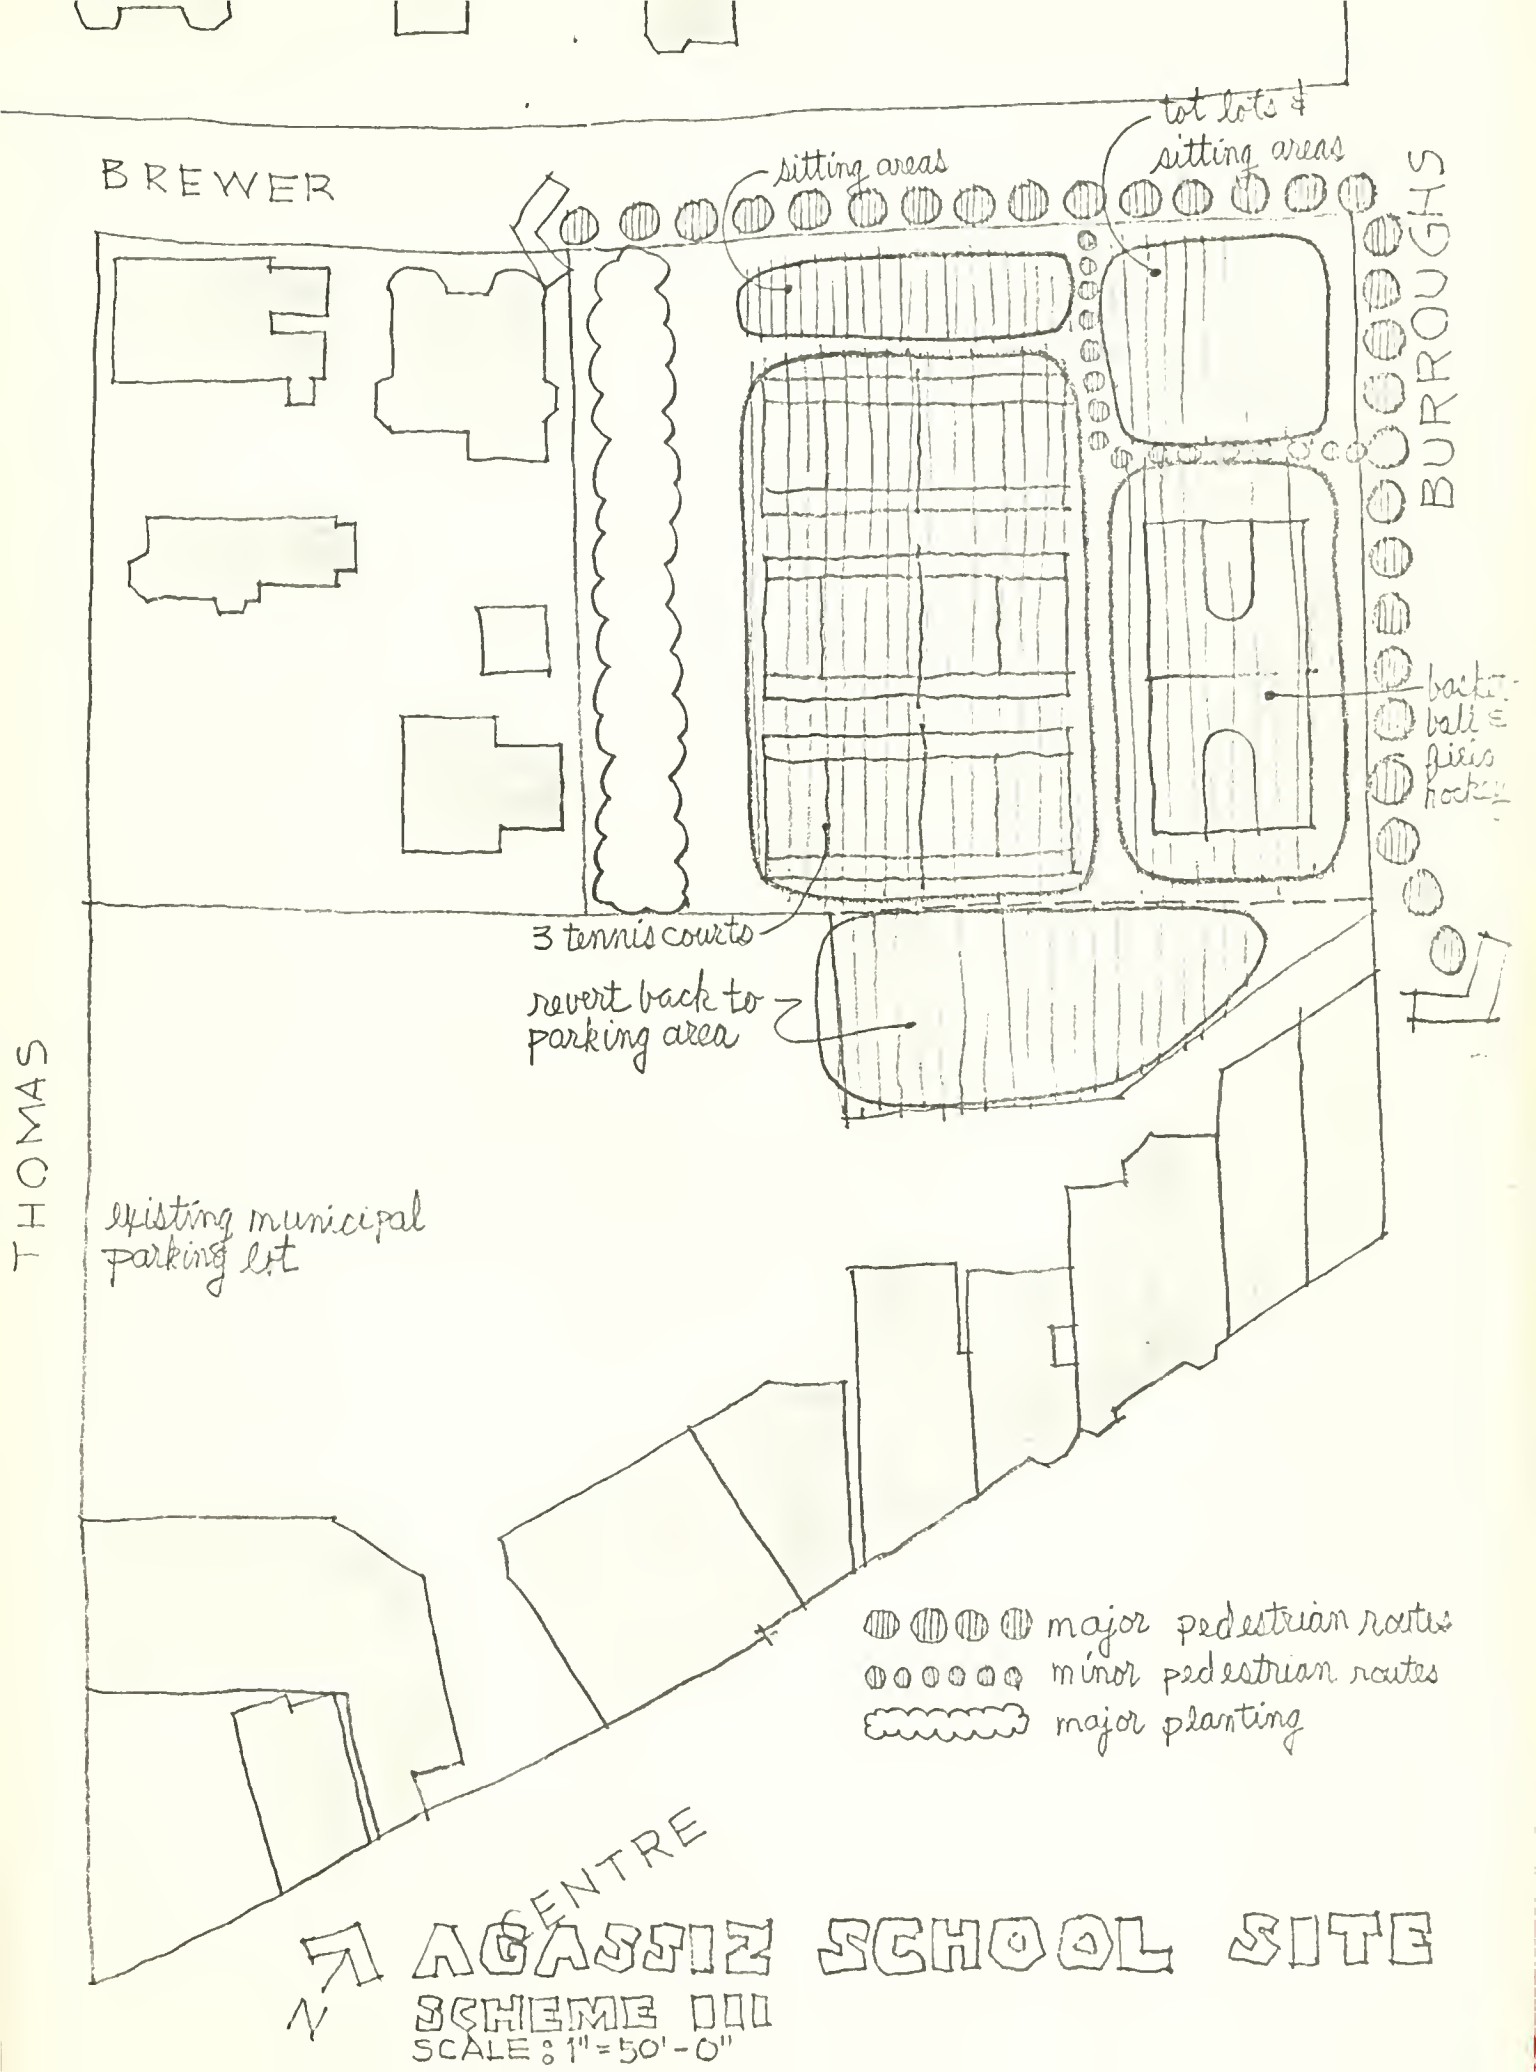 tot lots &
sitting areas
sitting areas
BREWER
BURROUGHS
basket-
ball &
hockey
3 tennis courts
revert back to
parking area
THOMAS
existing municipal
parking lot
major pedestrian routes
minor pedestrian routes
major planting
CENTRE
N
AGASSIZ SCHOOL SITE
SCHEME III
SCALE: 1"=50'-0"